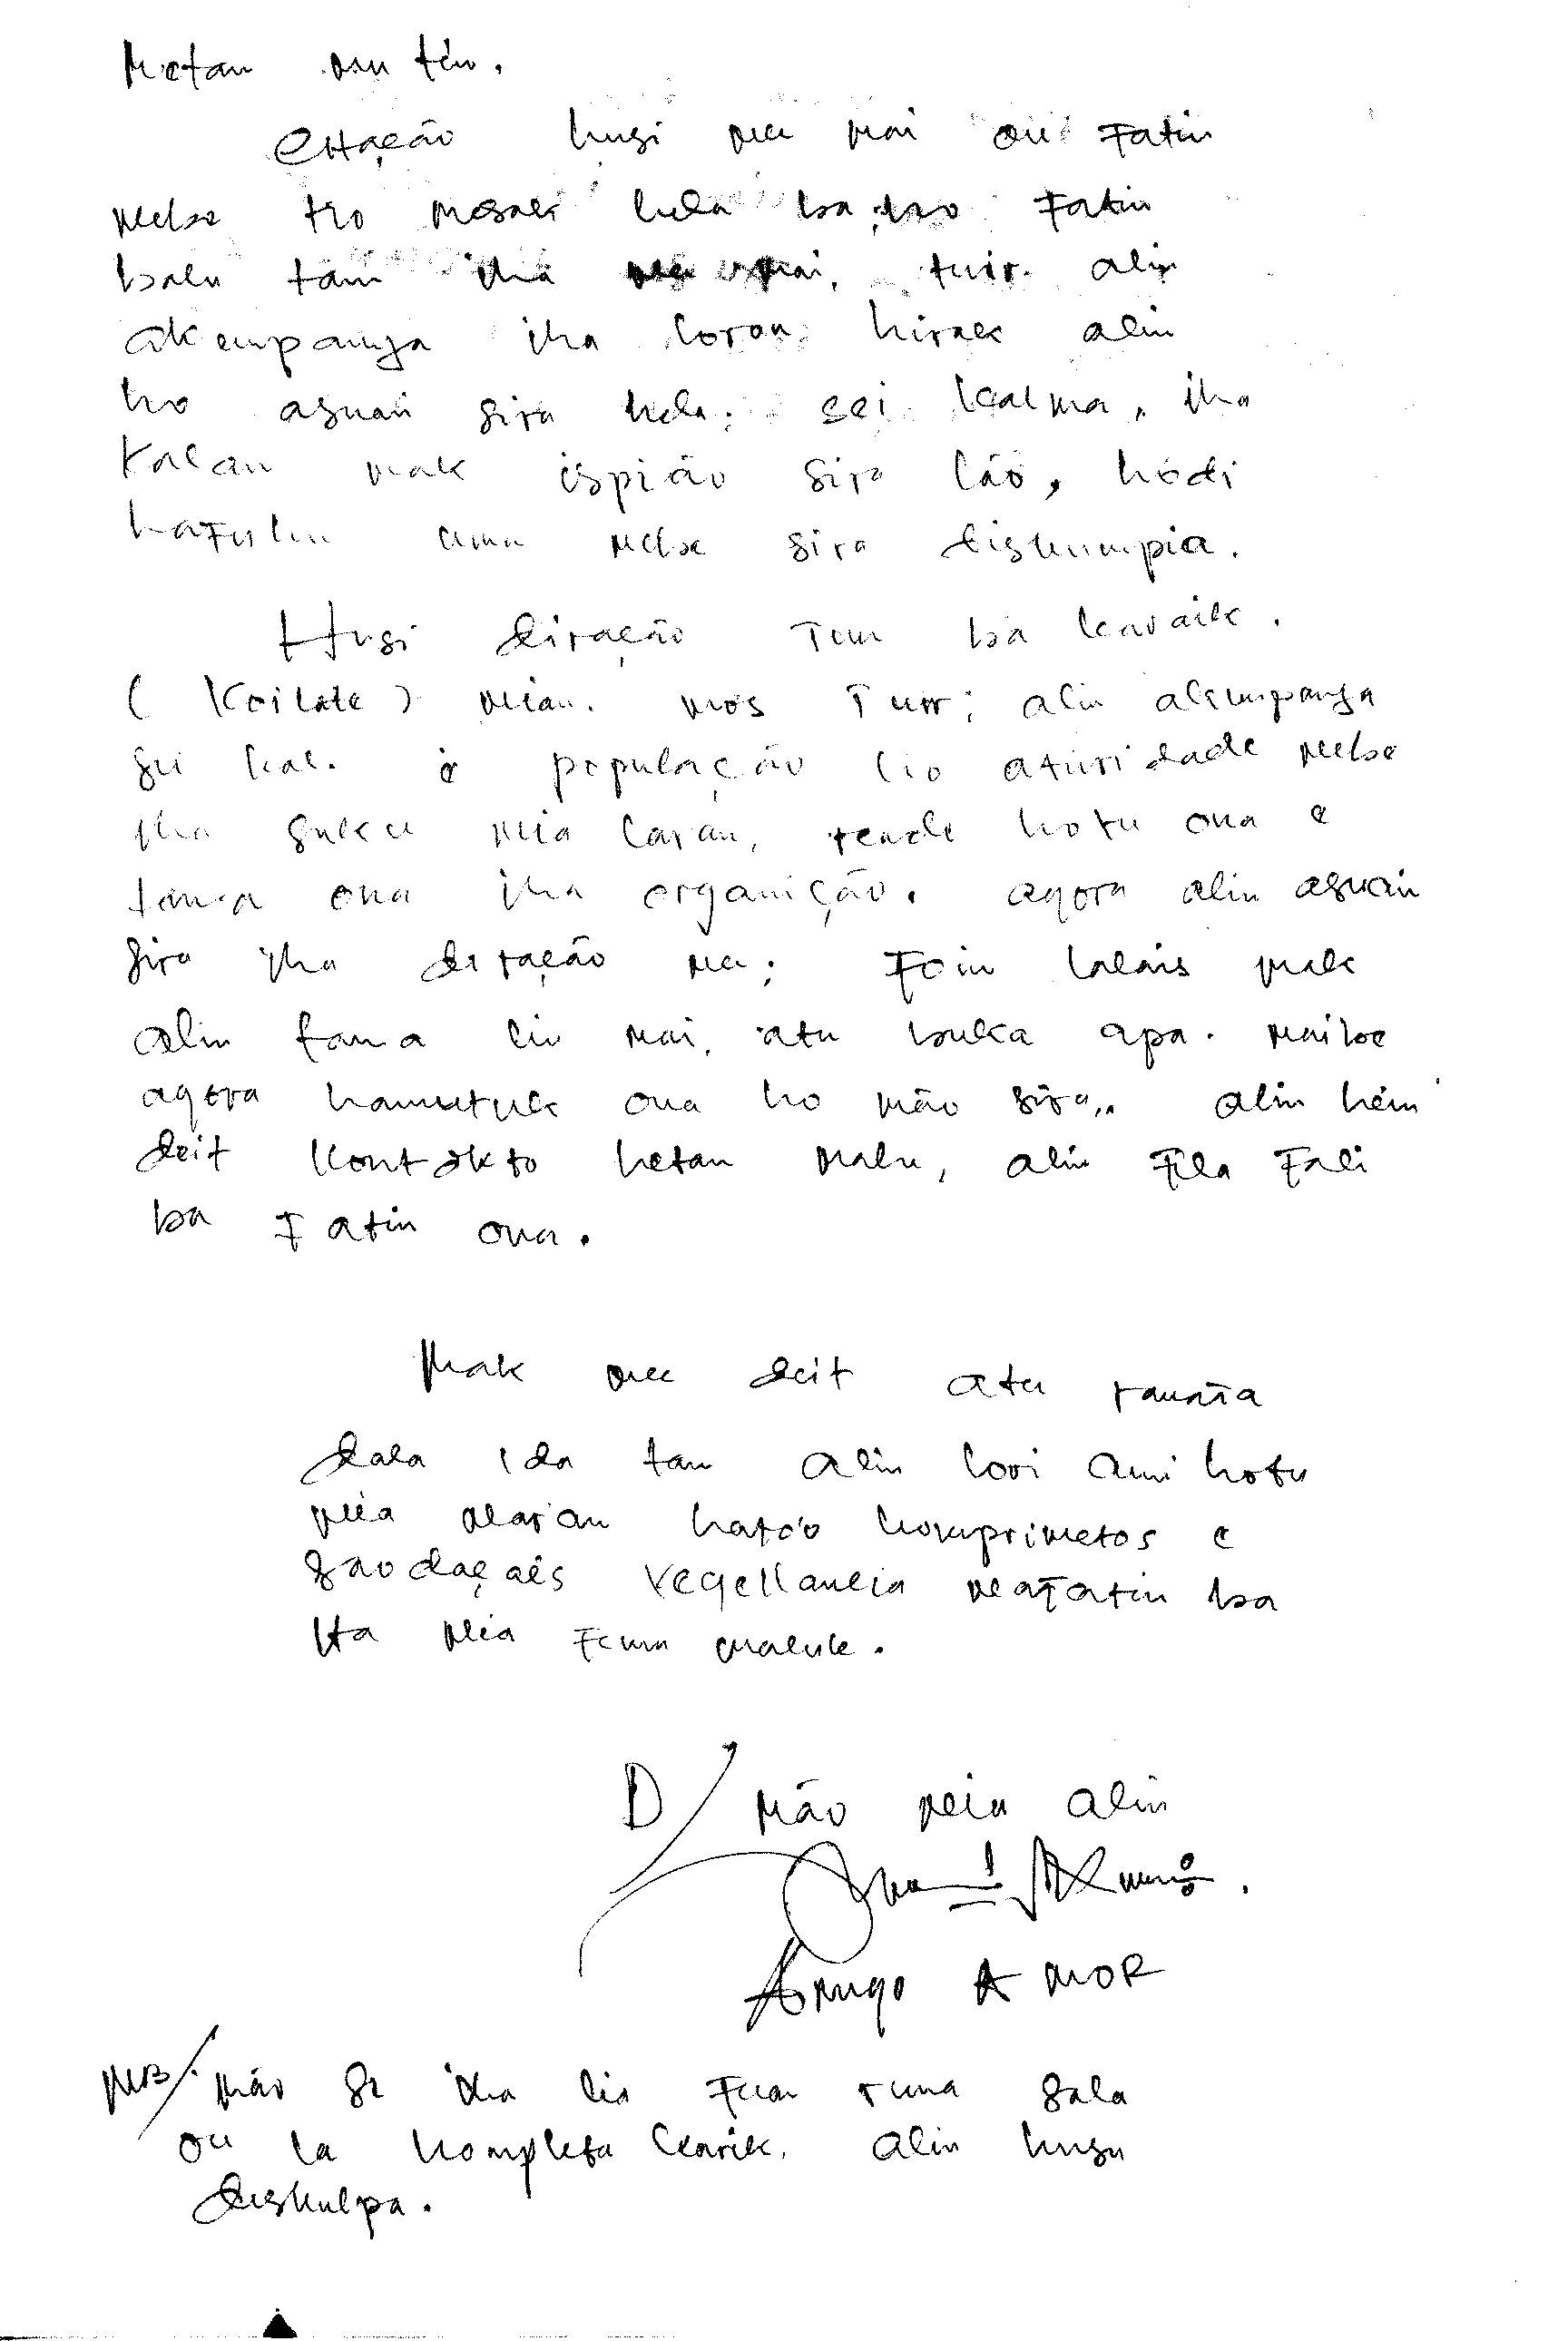 Metan oan tén.
Citação husi nee mai ou fatin
nebe tio mesak hela ba ho fatin
balu tam iha nee mai, tuir alin
akompanya iha loron hirak alin
ho asuain sira hela; sei kalma, iha
Kalan mak ispião sira lão, hodi
hafulin uma nebe sira diskumpia.
Husi diração Tun ba karaik.
(Koilate) nian. mos Tuir; alin akumpanya
sei kal. e população lio aturidade nebe
iha suku nia laran, rende hotu ona e
tama ona iha organição. agora alin asuain
sira iha diração nee; Foin lalais mak
alin tama liu mai, atu buka apa. maibe
agora hamutuk ona ho mão sira,, alin hein
deit kontakto hetan malu, alin Fila Fali
ba Fatin ona.
Mak nee deit atu ramata
dala ida tan alin lori ami hotu
nia naran hato'o komprimetos e
saodaçaes vegellancia nafatin ba
Ita nia Fuma maluk.
D/ Mão nia alin
Amigo AMOR
NB/ Mão se iha lia Fuan ruma sala
ou la kompleta karik, alin husu
diskulpa.